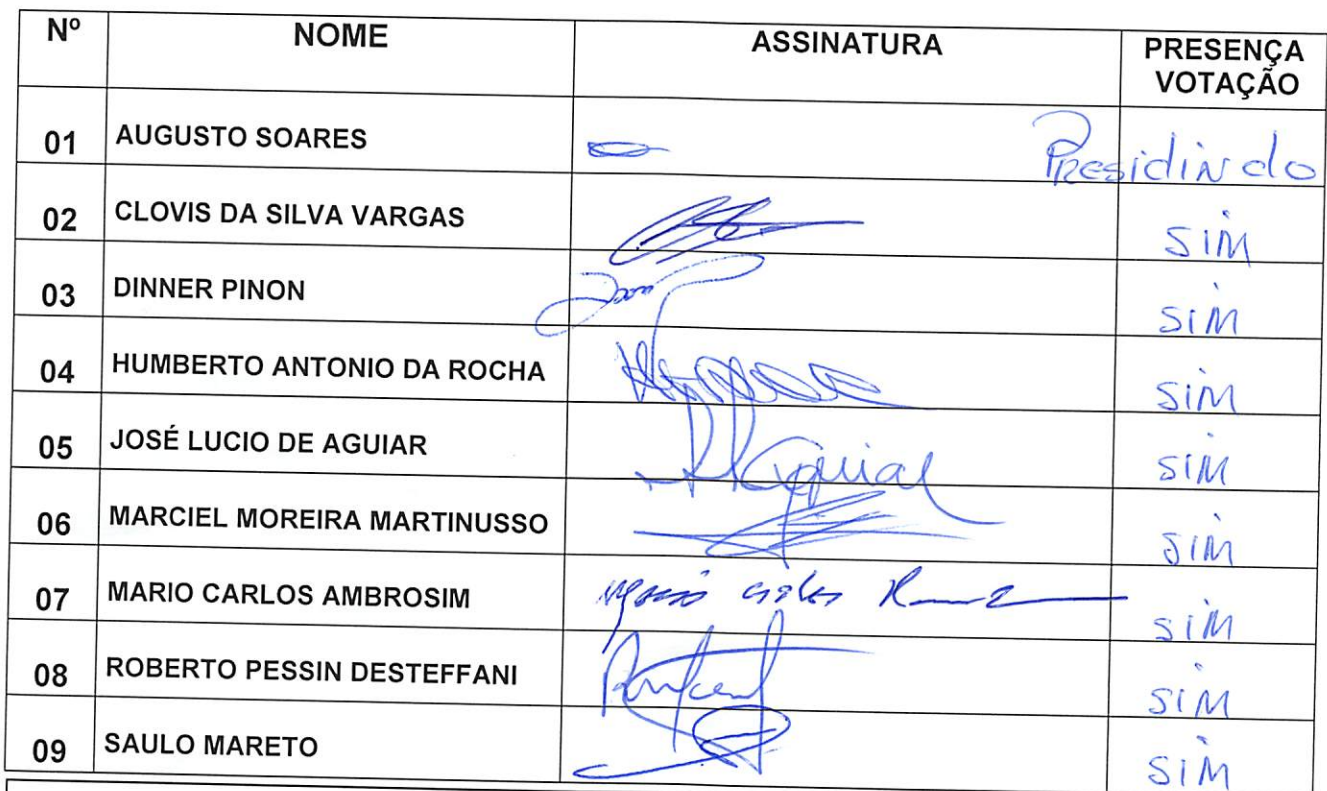 Nº NOME ASSINATURA PRESENÇA
VOTAÇÃO
01 AUGUSTO SOARES Presidindo
02 CLOVIS DA SILVA VARGAS SIM
03 DINNER PINON SIM
04 HUMBERTO ANTONIO DA ROCHA SIM
05 JOSÉ LUCIO DE AGUIAR Aguiar SIM
06 MARCIEL MOREIRA MARTINUSSO SIM
07 MARIO CARLOS AMBROSIM SIM
08 ROBERTO PESSIN DESTEFFANI SIM
09 SAULO MARETO SIM